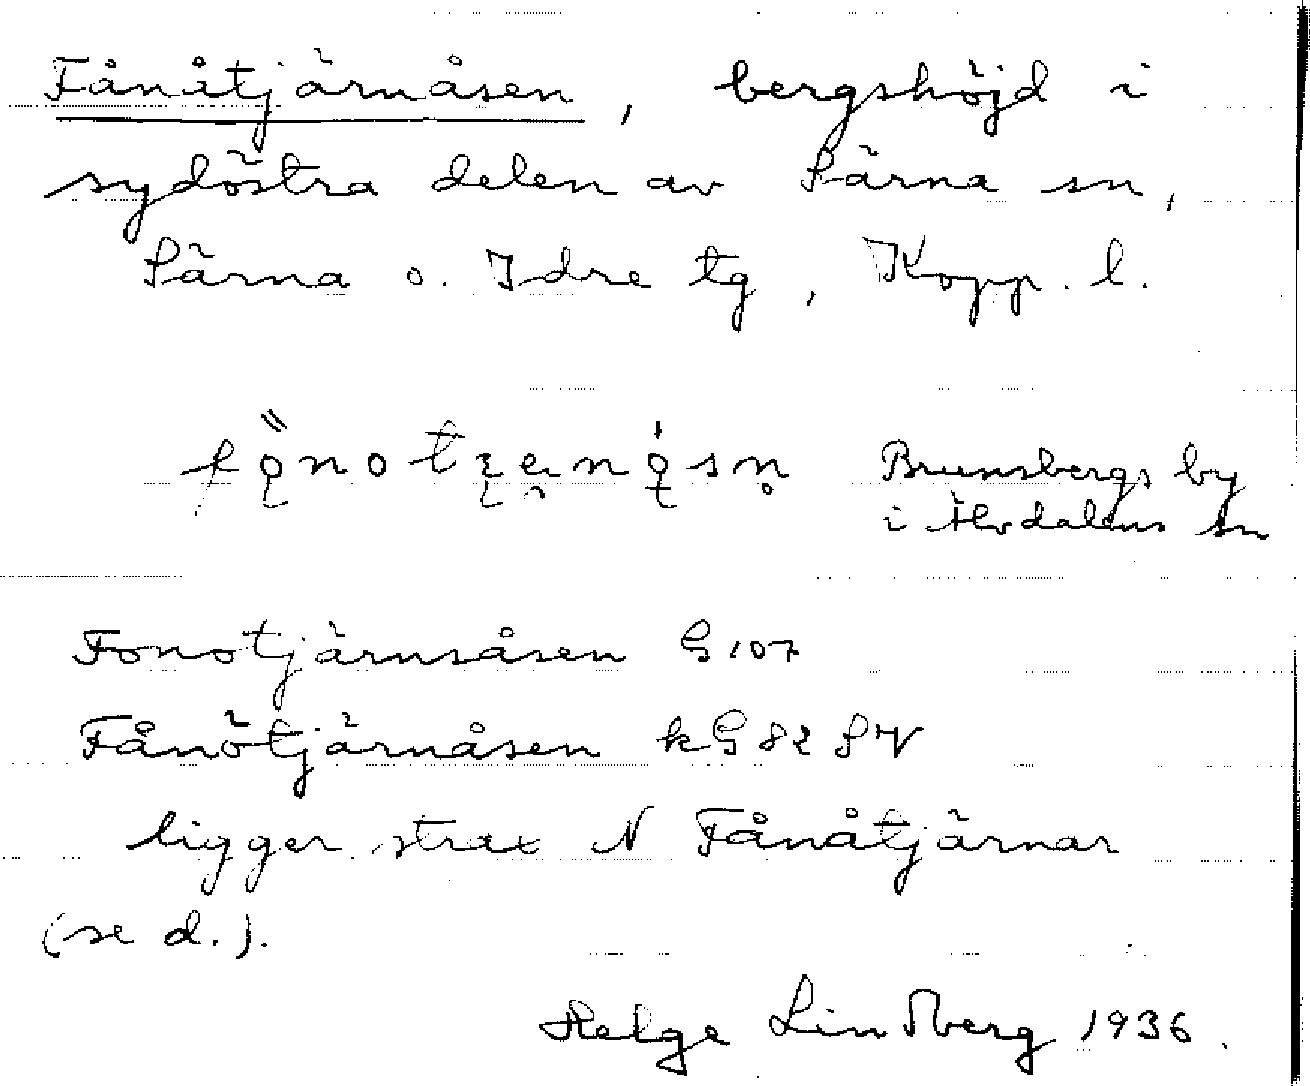 Fånåtjärnåsen, bergshöjd i
sydöstra delen av Särna sn,
Särna o. Idre tg, Kopp. l.
Brunnsbergs by
i Älvdalens sn
Fonotjärnsåsen G 107
Fånötjärnåsen kG 82 SV
ligger strax N Fånåtjärnar
(se d.).
Helge Lindberg 1936.